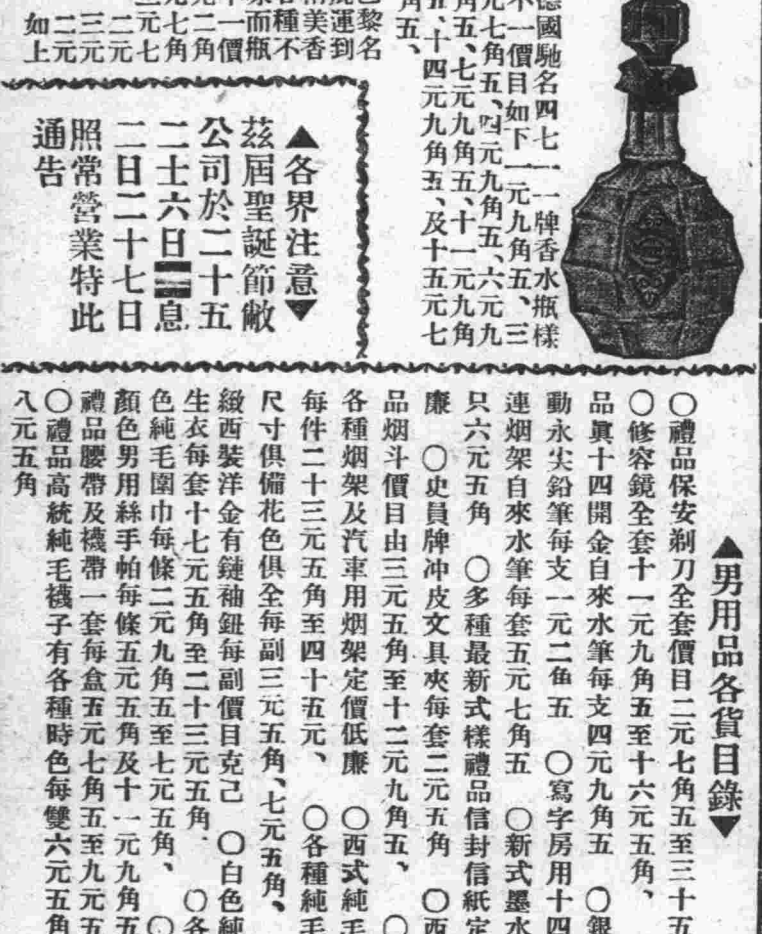 德國馳名四七一一牌香水瓶樣
不一價目如下一元九角五、三
元七角五、四元九角五、六元九
角五、七元九角五、十一元九角
五、十四元九角五、及十五元七
角五、
巴黎名
廠運到
常美香
各種不
裝而瓶
不一價
元二角
元七角
三元七
二元
三元
二元
如上
▲各界注意▼
茲屆聖誕節敝
公司於二十五
二十六日
息
二日二十七日
照常營業特此
通告
▲男用品各貨目錄▼
〇禮品保安剃刀全套價目二元七角五至三十五
〇修容鏡全套十一元九角五至十六元五角、
品眞十四開金自來水筆每支四元九角五 〇銀
動永尖鉛筆每支一元二角五 〇寫字房用十四
連烟架自來水筆每套五元七角五 〇新式墨水
只六元五角 〇多種最新式樣禮品信封信紙定
廉 〇史員牌冲皮文具夾每套二元五角 〇西
品烟斗價目由三元五角至十二元九角五、 〇
各種烟架及汽車用烟架定價低廉 〇西式純毛
每件二十三元五角至四十五元、 〇各種純毛
尺寸俱備花色俱全每副三元五角、七元五角、
緻西裝洋金有鏈袖鈕每副價目克己 〇白色純
生衣每套十七元五角至二十三元五角、 〇各
色純毛圍巾每條二元九角五至七元五角、 〇
顏色男用絲手帕每條五元五角及十一元九角五
禮品腰帶及襪帶一套每盒五元七角五至九元五
〇禮品高統純毛襪子有各種時色每雙六元五角
八元五角